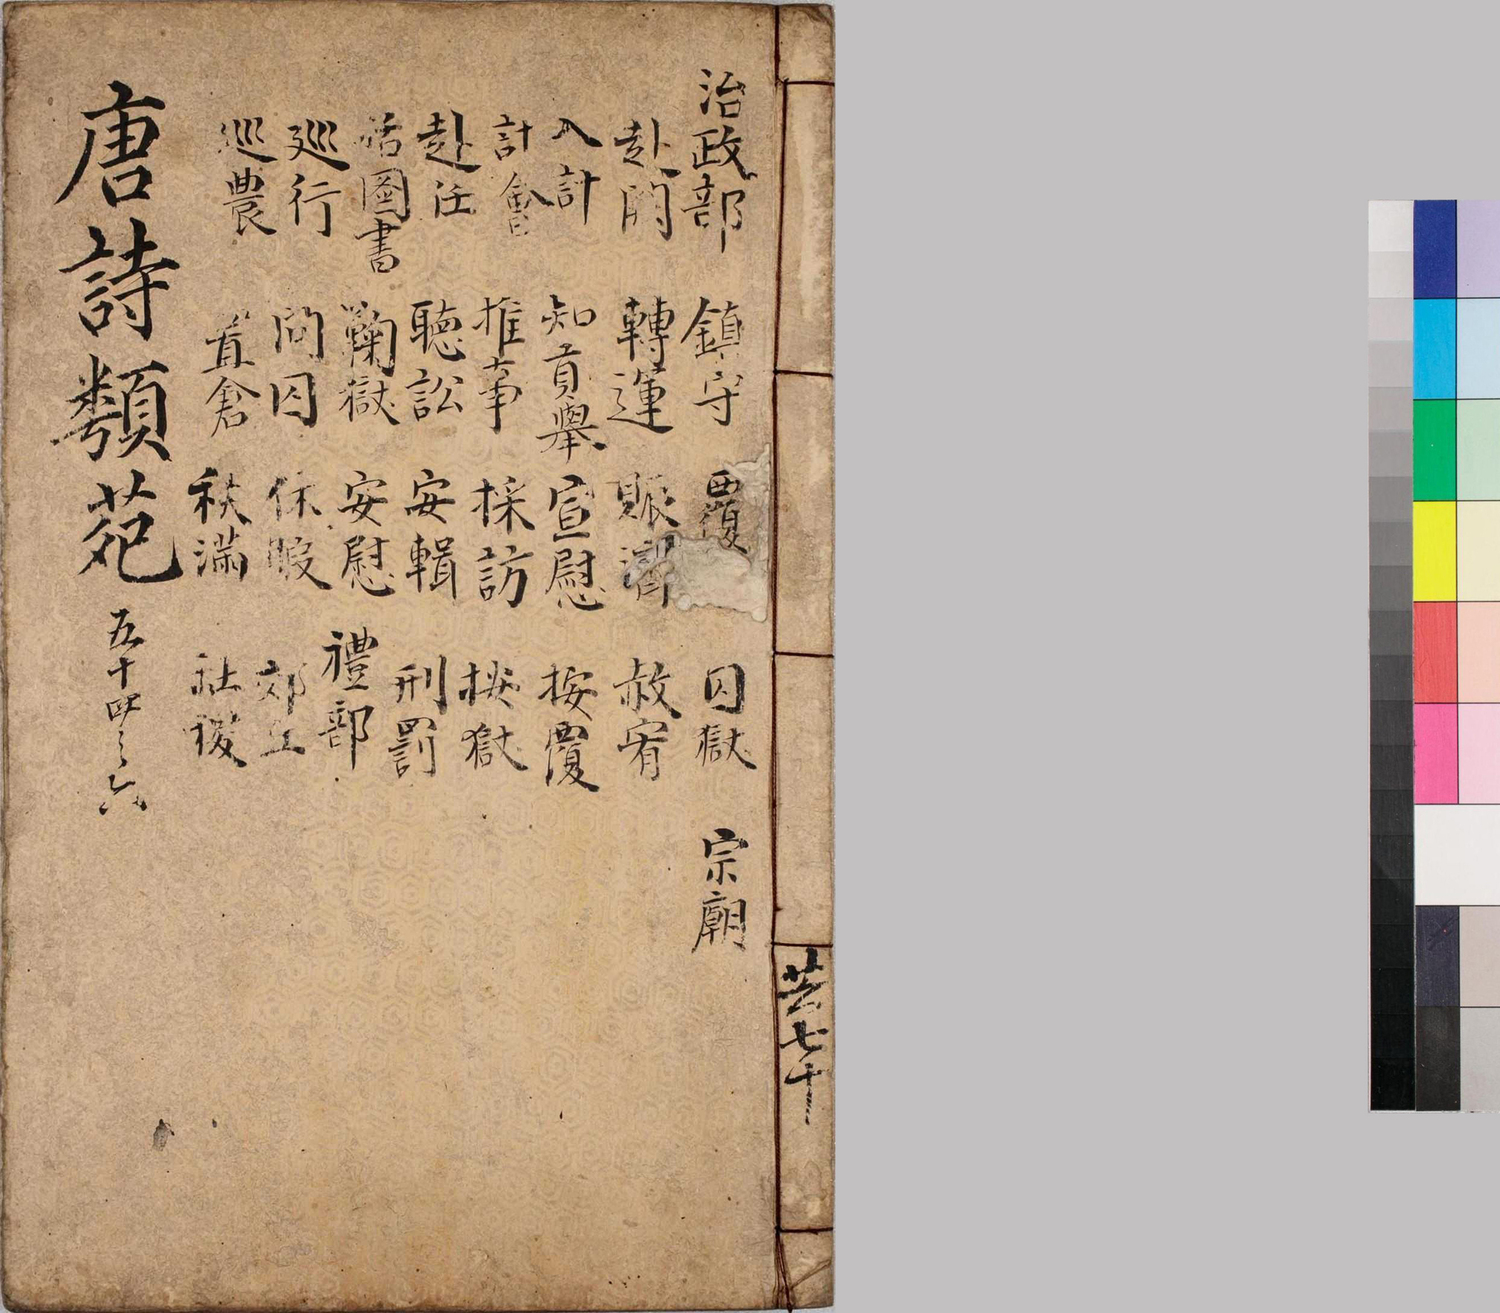 治政部
赴闕
入計
計會
赴任
括圖書
巡行
巡農
鎮守
轉運
知貢舉
推事
聽訟
鞠獄
問囚
置倉
覆
賑濟
宣慰
採訪
安輯
安慰
休暇
秩滿
囚獄
赦宥
按覆
按獄
刑罰
禮部
郊丘
社稷
宗廟
唐詩類苑
五十四 六
七十